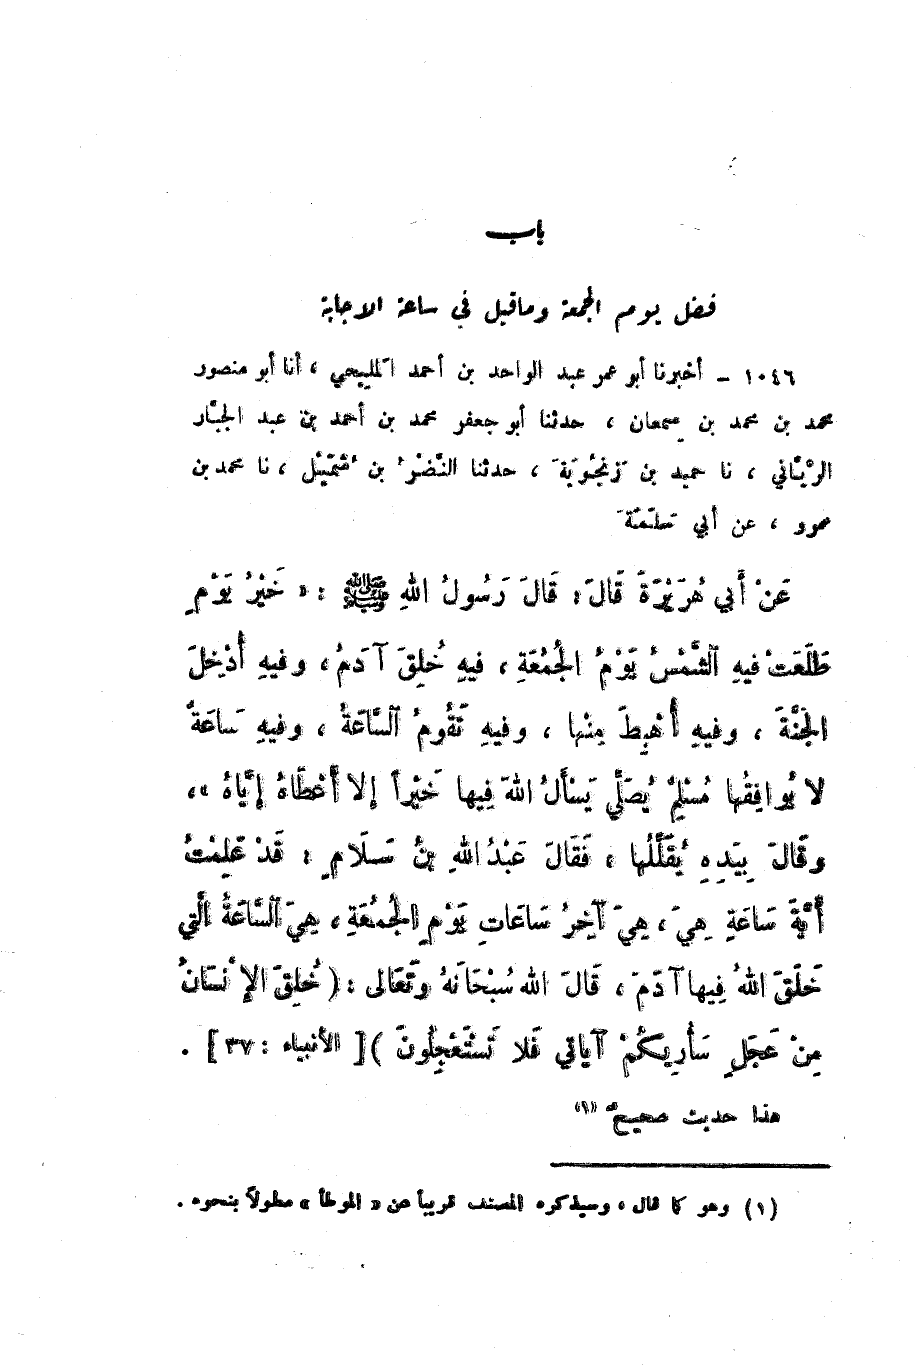 باب
فضل يوم الجمعة وما قيل في ساعة الاجابة
١٠٤٦ – أخبرنا أبو عمر عبد الواحد بن أحمد المليحي ، أنا أبو منصور
محمد بن محمد بن سمعان ، حدثنا أبو جعفر محمد بن أحمد بن عبد الجبّار
الريّاني ، نا حميد بن زنجُويَة ، حدثنا النَّضْرُ بن شُمَيْل ، نا محمد بن
عمرو ، عن أبي سَلَمَةَ
عَنْ أَبي هُرَيْرَةَ قَالَ : قَالَ رَسُولُ اللهِ ﷺ : « خَيْرُ يَوْمٍ
طَلَعَتْ فيهِ الشَّمْسُ يَوْمُ الجُمُعَةِ ، فيهِ خُلِقَ آدَمُ ، وفيهِ أُدْخِلَ
الجَنَّةَ ، وفيهِ أُهْبِطَ مِنْها ، وفيهِ تَقُومُ السَّاعَةُ ، وفيهِ سَاعَةٌ
لا يُوافِقُها مُسْلِمٌ يُصَلِّي يَسْأَلُ اللهَ فِيها خَيْراً إلا أَعْطَاهُ إيَّاهُ » ،
وقَالَ بِيَدِهِ يُقَلِّلُها ، فَقَالَ عَبْدُ اللهِ بنُ سَلَامٍ : قَدْ عَلِمْتُ
أَيَّةَ سَاعَةٍ هِيَ ، هِيَ آخِرُ سَاعَاتِ يَوْمِ الجُمُعَةِ ، هِيَ السَّاعَةُ الَّتي
خَلَقَ اللهُ فِيها آدَمَ ، قَالَ اللهُ سُبْحَانَهُ وتَعَالى : ( خُلِقَ الإنْسَانُ
مِنْ عَجَلٍ سَأُرِيكُمْ آيَاتي فَلا تَسْتَعْجِلُونَ ) [ الأنبياء : ٣٧ ] .
هذا حديث صحيحٌ (١)
(١) وهو كما قال ، وسيذكره المصنف قريباً عن « الموطأ » مطولاً بنحوه .